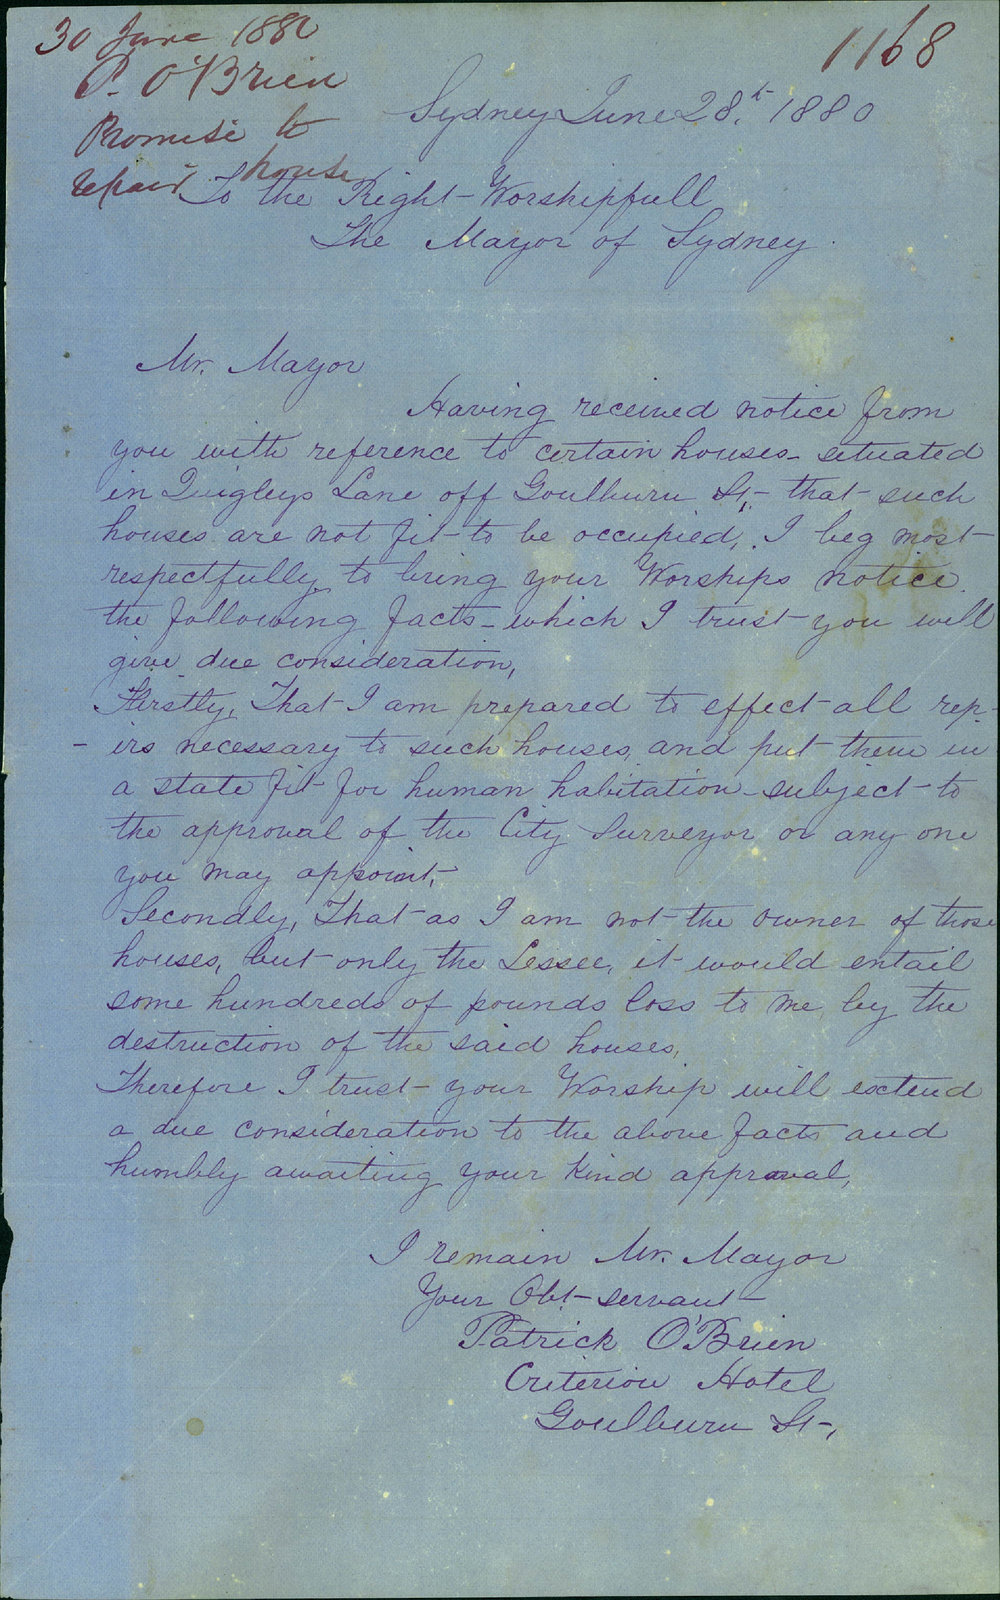 30 June 1880
P. O'Brien
Promise to
repair house
1168
Sydney June 28th 1880
To the Right Worshipfull
The Mayor of Sydney.
Mr. Mayor
Having received notice from
you with reference to certain houses situated
in Quigleys Lane off Goulburn St, that such
houses are not fit to be occupied, I beg most
respectfully to bring your Worships notice
the following facts which I trust you will
give due consideration,
Firstly, That I am prepared to effect all rep-
- irs necessary to such houses, and put them in
a state fit for human habitation subject to
the approval of the City Surveyor or any one
you may appoint,
Secondly, That as I am not the owner of those
houses, but only the Lessee, it would entail
some hundreds of pounds loss to me by the
destruction of the said houses,
Therefore I trust your Worship will extend
a due consideration to the above facts and
humbly awaiting your kind approval,
I remain Mr. Mayor
Your Obt servant
Patrick O'Brien
Criterion Hotel
Goulburn St,